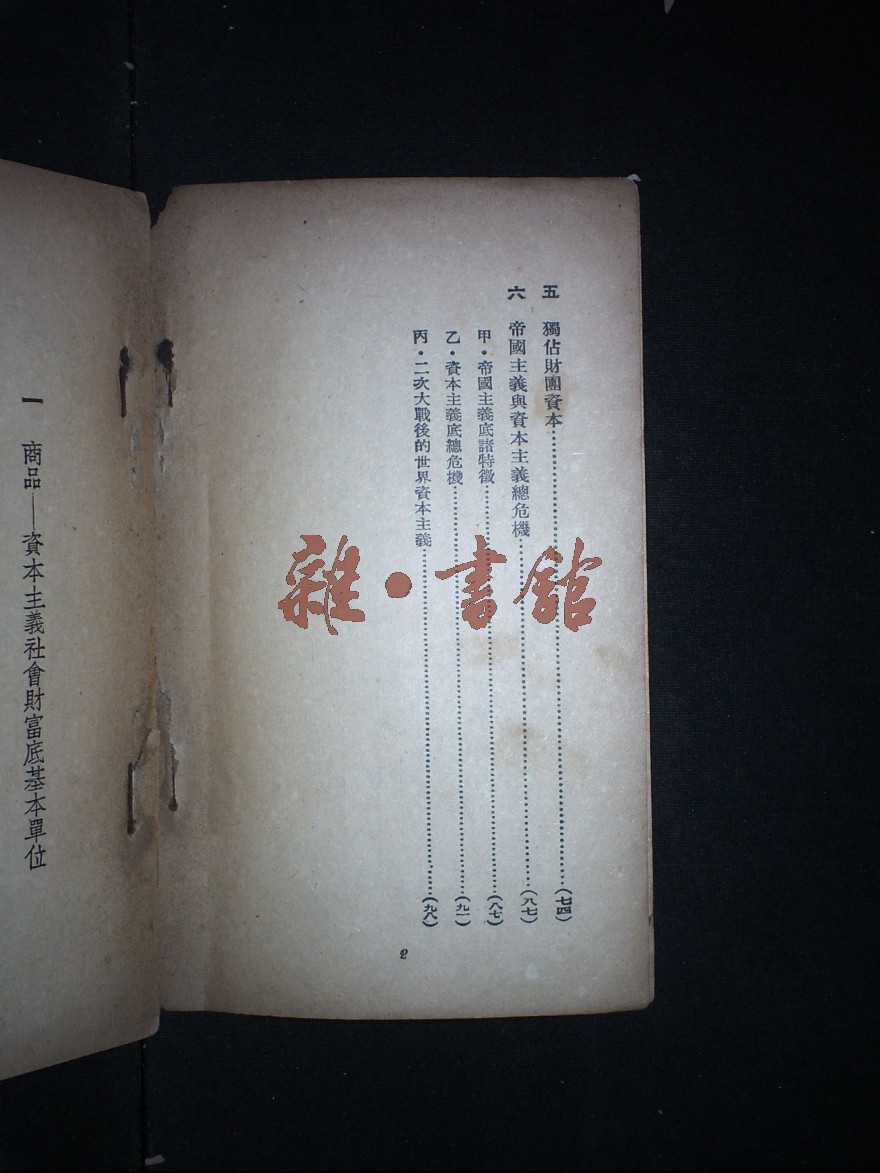 五　獨佔財團資本……………………(七四)
六　帝國主義與資本主義總危機……………………(八七)
甲・帝國主義底諸特徵……………………(八七)
乙・資本主義底總危機……………………(九一)
丙・二次大戰後的世界資本主義……………………(九八)
2
一　商品——資本主義社會財富底基本單位
雜・書館